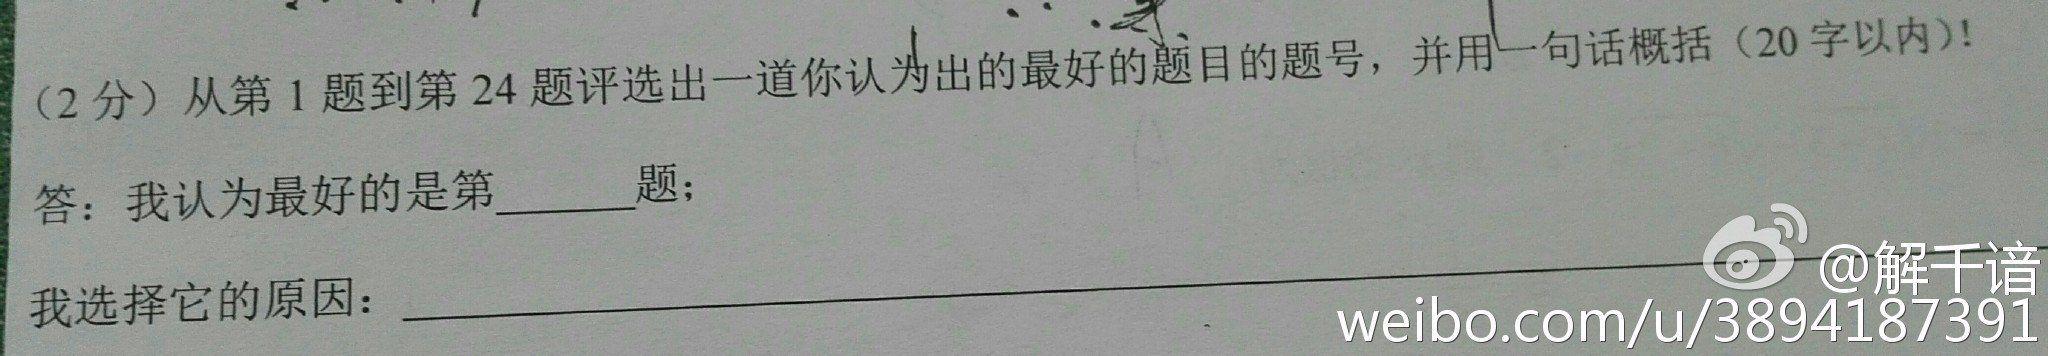 （2分）从第1题到第24题评选出一道你认为出的最好的题目的题号，并用一句话概括（20字以内）！
答：我认为最好的是第______题；
我选择它的原因：
@解千谙
weibo.com/u/3894187391